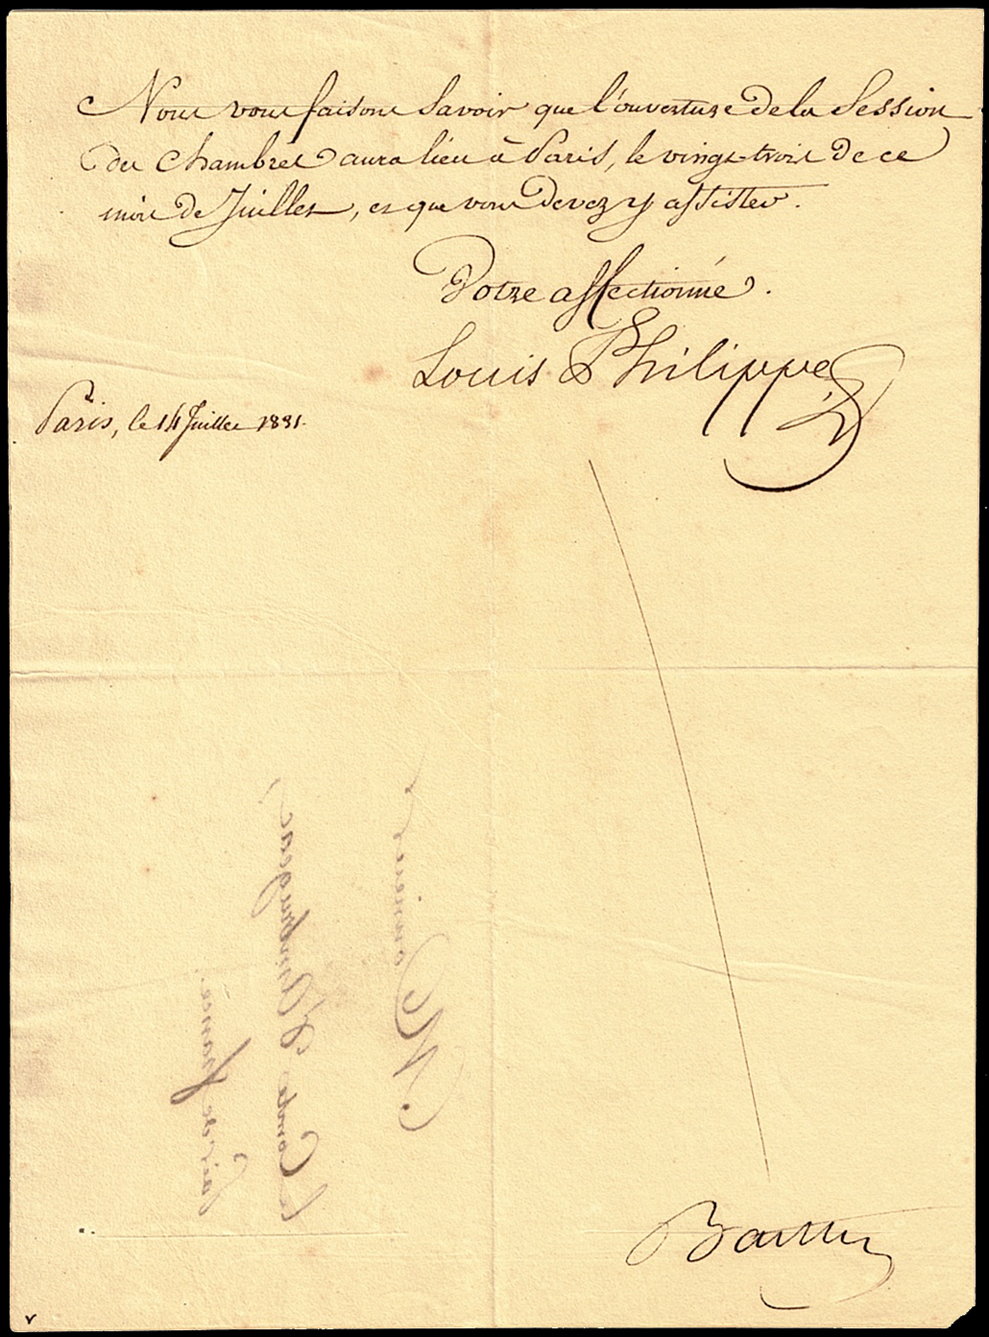 Nous vous faisons Savoir que l'ouverture de la Session
des Chambres aura lieu à Paris, le vingt-trois de ce
mois de Juillet, et que vous devez y assister.
Votre affectionné.
Louis Philippe
Paris, le 14 Juillet 1831.
Monsieur
Le Comte d'Ambrugeac
Pair de France.